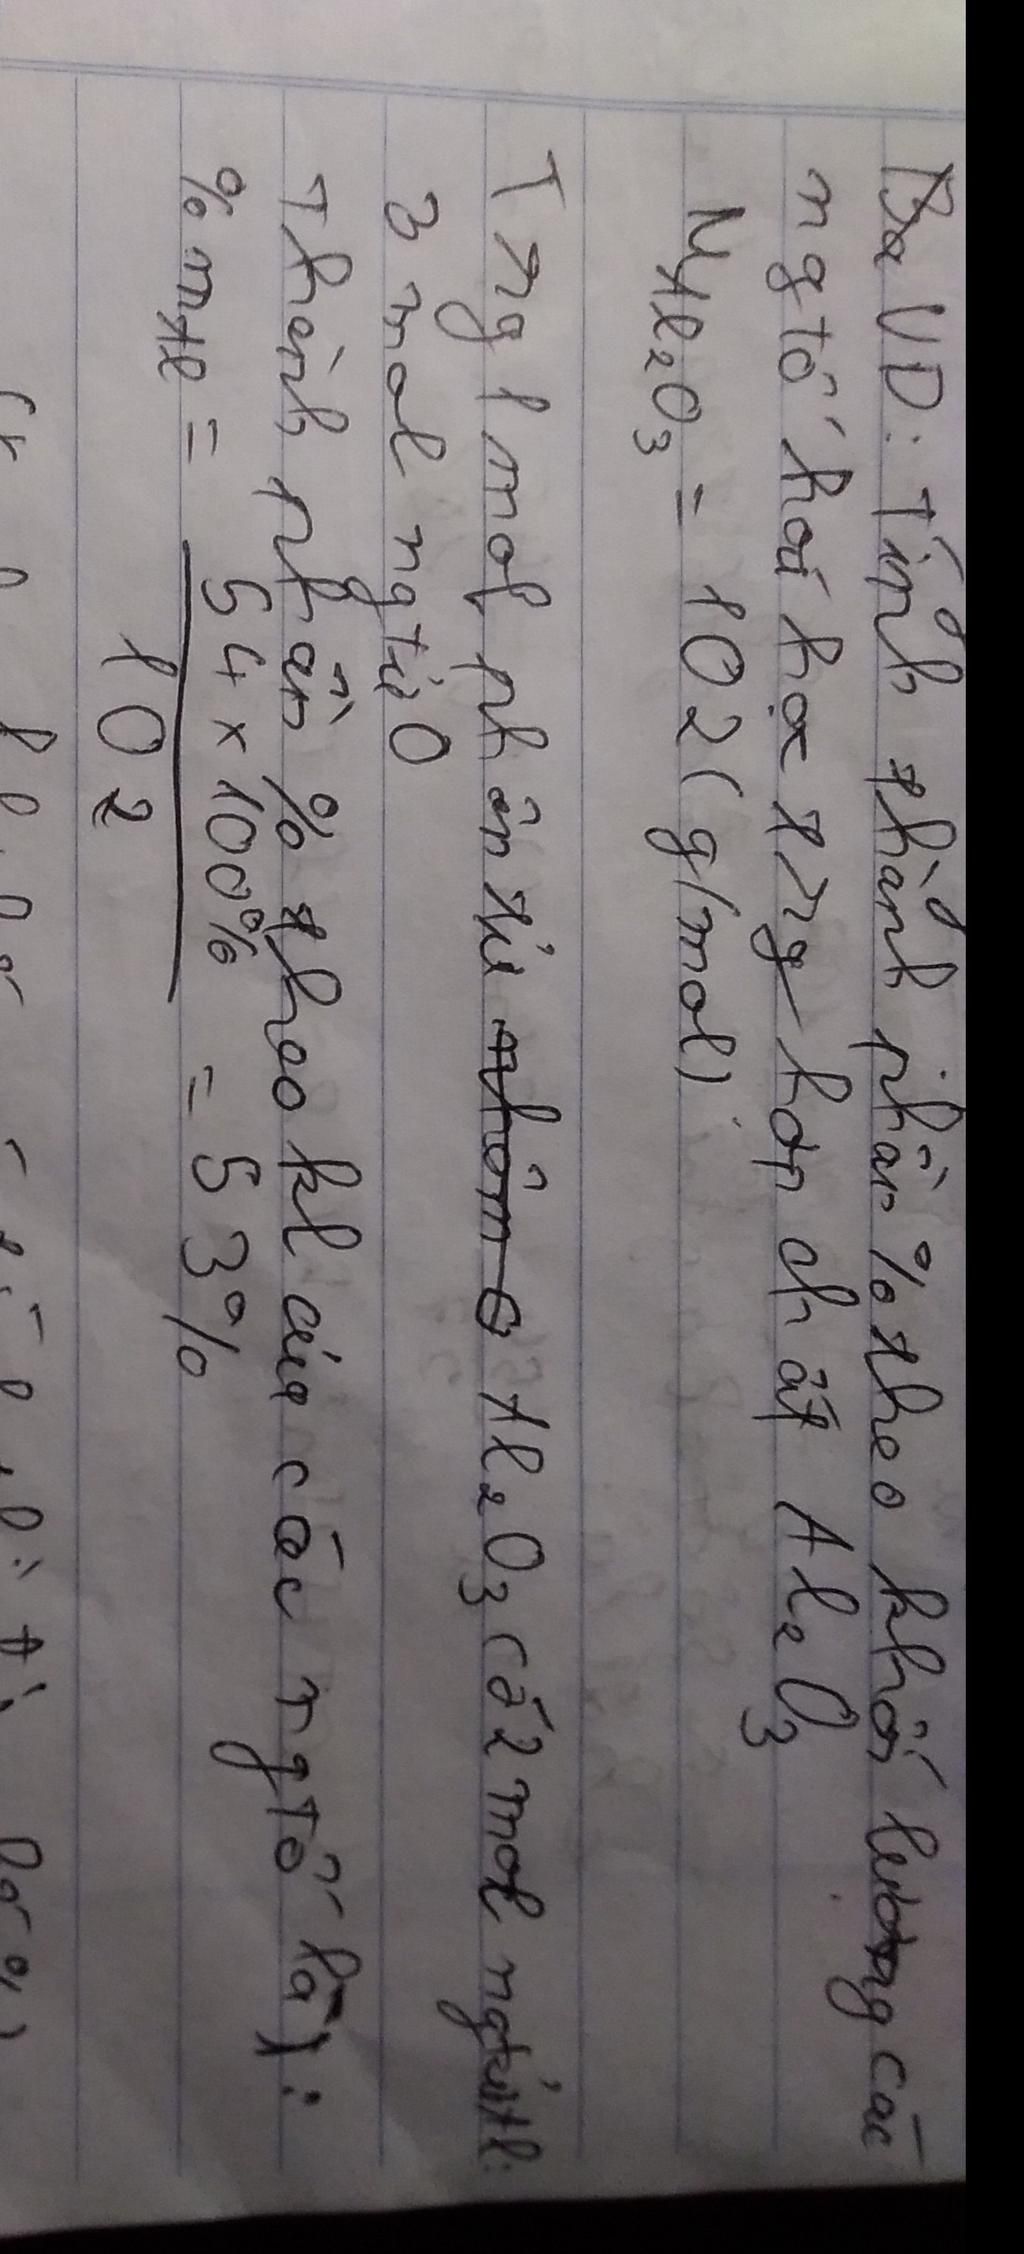 VD: Tính thành phần % theo khối lượng các
ngtố hoá học trg hợp chất Al₂O₃
M_Al₂O₃ = 102 (g/mol)
Trg 1 mol phân tử Al₂O₃ có 2 mol ngtử Al:
3 mol ngtử O
Thành phần % theo kl của các ngtố là:
%m_Al = 54 x 100% / 102 = 53%